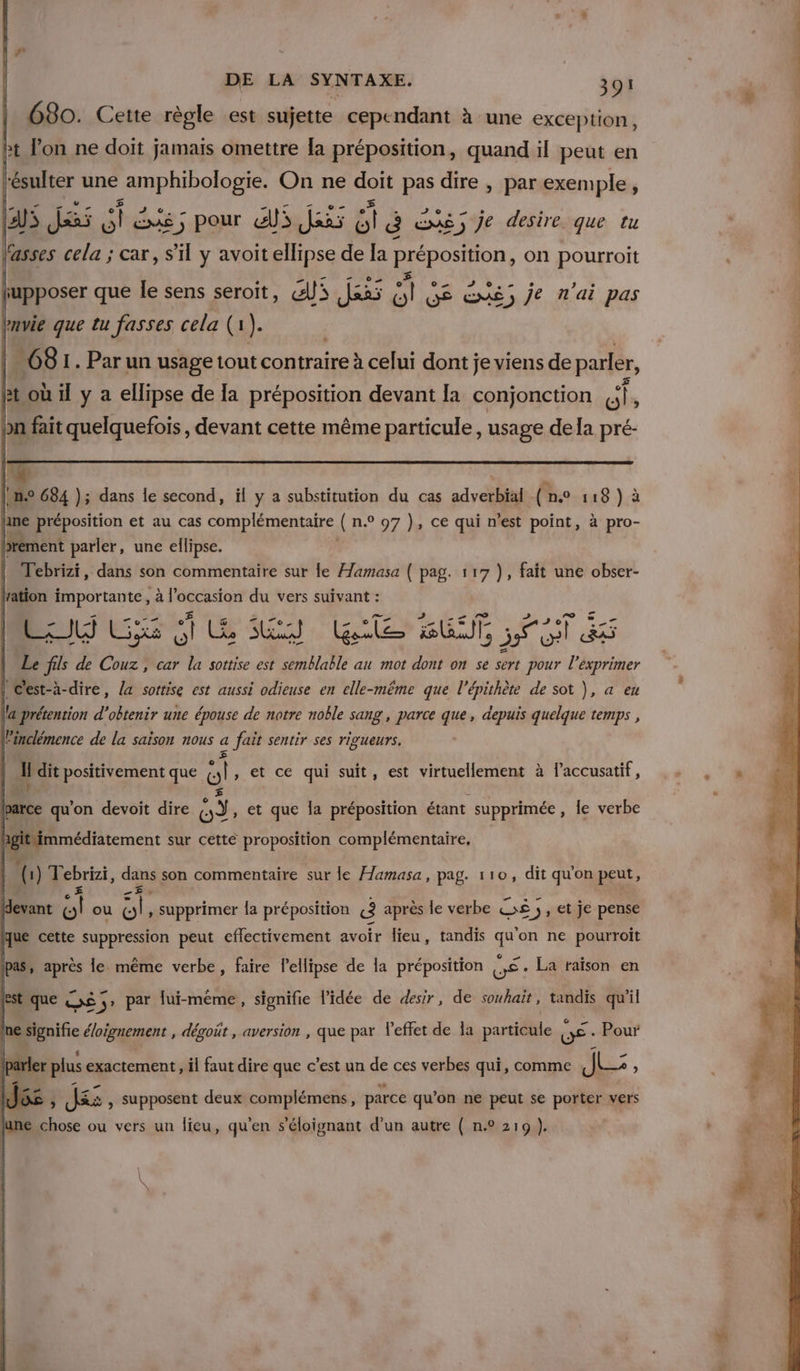 DE LA SYNTAXE. 391
680. Cette règle est sujette cependant à une exception,
et l'on ne doit jamais omettre la préposition, quand il peut en
résulter une amphibologie. On ne doit pas dire, par exemple,
رَغِبْتُ أَنْ تَفْعَلَ ذٰلِكَ pour رَغِبْتُ فِي أَنْ تَفْعَلَ ذٰلِكَ je desire que tu
fasses cela ; car, s'il y avoit ellipse de la préposition, on pourroit
supposer que le sens seroit, رَغِبْتُ عَنْ أَنْ تَفْعَلَ ذٰلِكَ je n'ai pas
envie que tu fasses cela (1).
681. Par un usage tout contraire à celui dont je viens de parler,
et où il y a ellipse de la préposition devant la conjonction أَنْ,
on fait quelquefois, devant cette même particule, usage de la pré-
n.º 684 ); dans le second, il y a substitution du cas adverbial ( n.º 118 ) à
une préposition et au cas complémentaire ( n.º 97 ), ce qui n'est point, à pro-
prement parler, une ellipse.
Tebrizi, dans son commentaire sur le Hamasa ( pag. 117 ), fait une obser-
vation importante, à l'occasion du vers suivant :
تَبَغَّى آبْنُ كُوزٍ وَالسَّفَاهَةُ كَآسْمِهَا لِيَسْتَادَ مِنَّا أَنْ شَتَوْنَا لَيَالِيَا
Le fils de Couz, car la sottise est semblable au mot dont on se sert pour l'exprimer
( c'est-à-dire, la sottise est aussi odieuse en elle-même que l'épithète de sot ), a eu
la prétention d'obtenir une épouse de notre noble sang, parce que, depuis quelque temps,
l'inclémence de la saison nous a fait sentir ses rigueurs.
Il dit positivement que أَنْ, et ce qui suit, est virtuellement à l'accusatif,
parce qu'on devoit dire لِأَنْ, et que la préposition étant supprimée, le verbe
agit immédiatement sur cette proposition complémentaire.
(1) Tebrizi, dans son commentaire sur le Hamasa, pag. 110, dit qu'on peut,
devant أَنْ ou أَنَّ, supprimer la préposition فِي après le verbe رَغِبَ, et je pense
que cette suppression peut effectivement avoir lieu, tandis qu'on ne pourroit
pas, après le même verbe, faire l'ellipse de la préposition عَنْ. La raison en
est que رَغِبَ, par lui-même, signifie l'idée de desir, de souhait, tandis qu'il
ne signifie éloignement, dégoût, aversion, que par l'effet de la particule عَنْ. Pour
parler plus exactement, il faut dire que c'est un de ces verbes qui, comme مَالَ,
عَدَلَ, شَغَلَ, supposent deux complémens, parce qu'on ne peut se porter vers
une chose ou vers un lieu, qu'en s'éloignant d'un autre ( n.º 219 ).